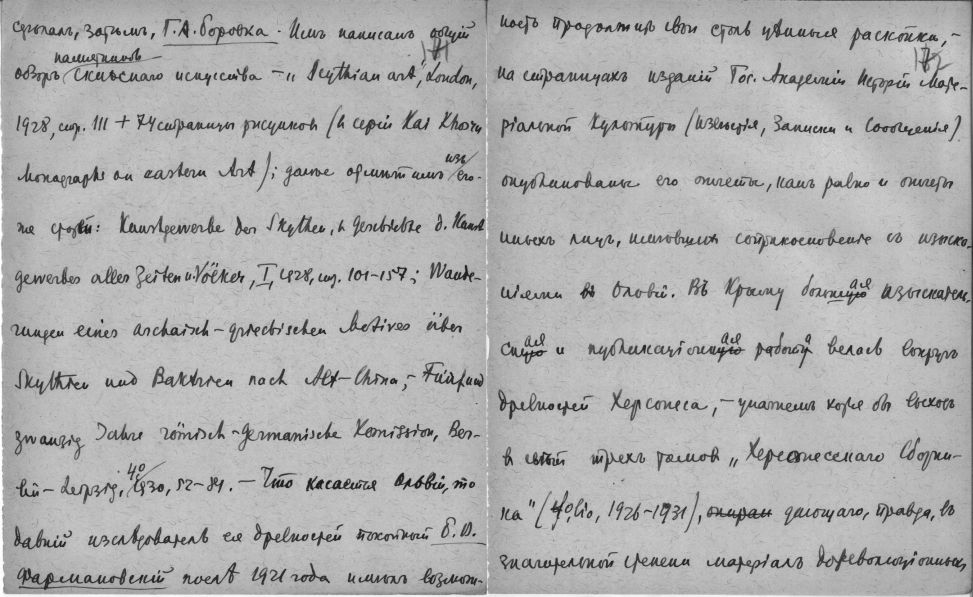 сдѣлалъ, затѣмъ, Г. А. Боровка. Имъ написанъ общій
171
обзоръ памятниковъ скиѳскаго искусства – „Scythian art", London,
1928, стр. 111 + 74 страницы рисунковъ (въ серіи Kai Khosru
Monographs on eastern Art); далѣе отмѣтимъ изъ его-
же статей: Kunstgewerbe der Skythen, въ Geschichte d. Kunst
gewerbes aller Zeiten u. Völker, I, 1928, стр. 101-157; Wande-
rungen eines archaisch-griechischen Motives über
Skythien und Baktrien nach Alt-China, – Fünfund
zwanzig Jahre römisch-germanische Komission, Ber-
lin – Leipzig, 4º, 1930, 52-81. – Что касается Ольвіи, то
давній изслѣдователь ея древностей покойный Б. В.
Фармаковскій послѣ 1921 года имѣлъ возмож-
ность продолжить свои столь цѣнныя раскопки, –
172
на страницахъ изданій Гос. Академіи Исторіи Мате-
ріальной Культуры (Извѣстія, Записки и Сообщенія)
опубликованы его отчеты, какъ равно и отчеты
иныхъ лицъ, имѣвшихъ соприкосновеніе съ изыска-
ніями въ Ольвіи. Въ Крыму большая изыскатель
ская и публикаціонная работа велась вокругъ
древностей Херсонеса, – укажемъ хотя бы выходъ
въ свѣтъ трехъ томовъ „Херсонесскаго Сборни-
ка" (4º, 1926-1931), дающаго, правда, въ
значительной степени матеріалъ дореволюціонныхъ